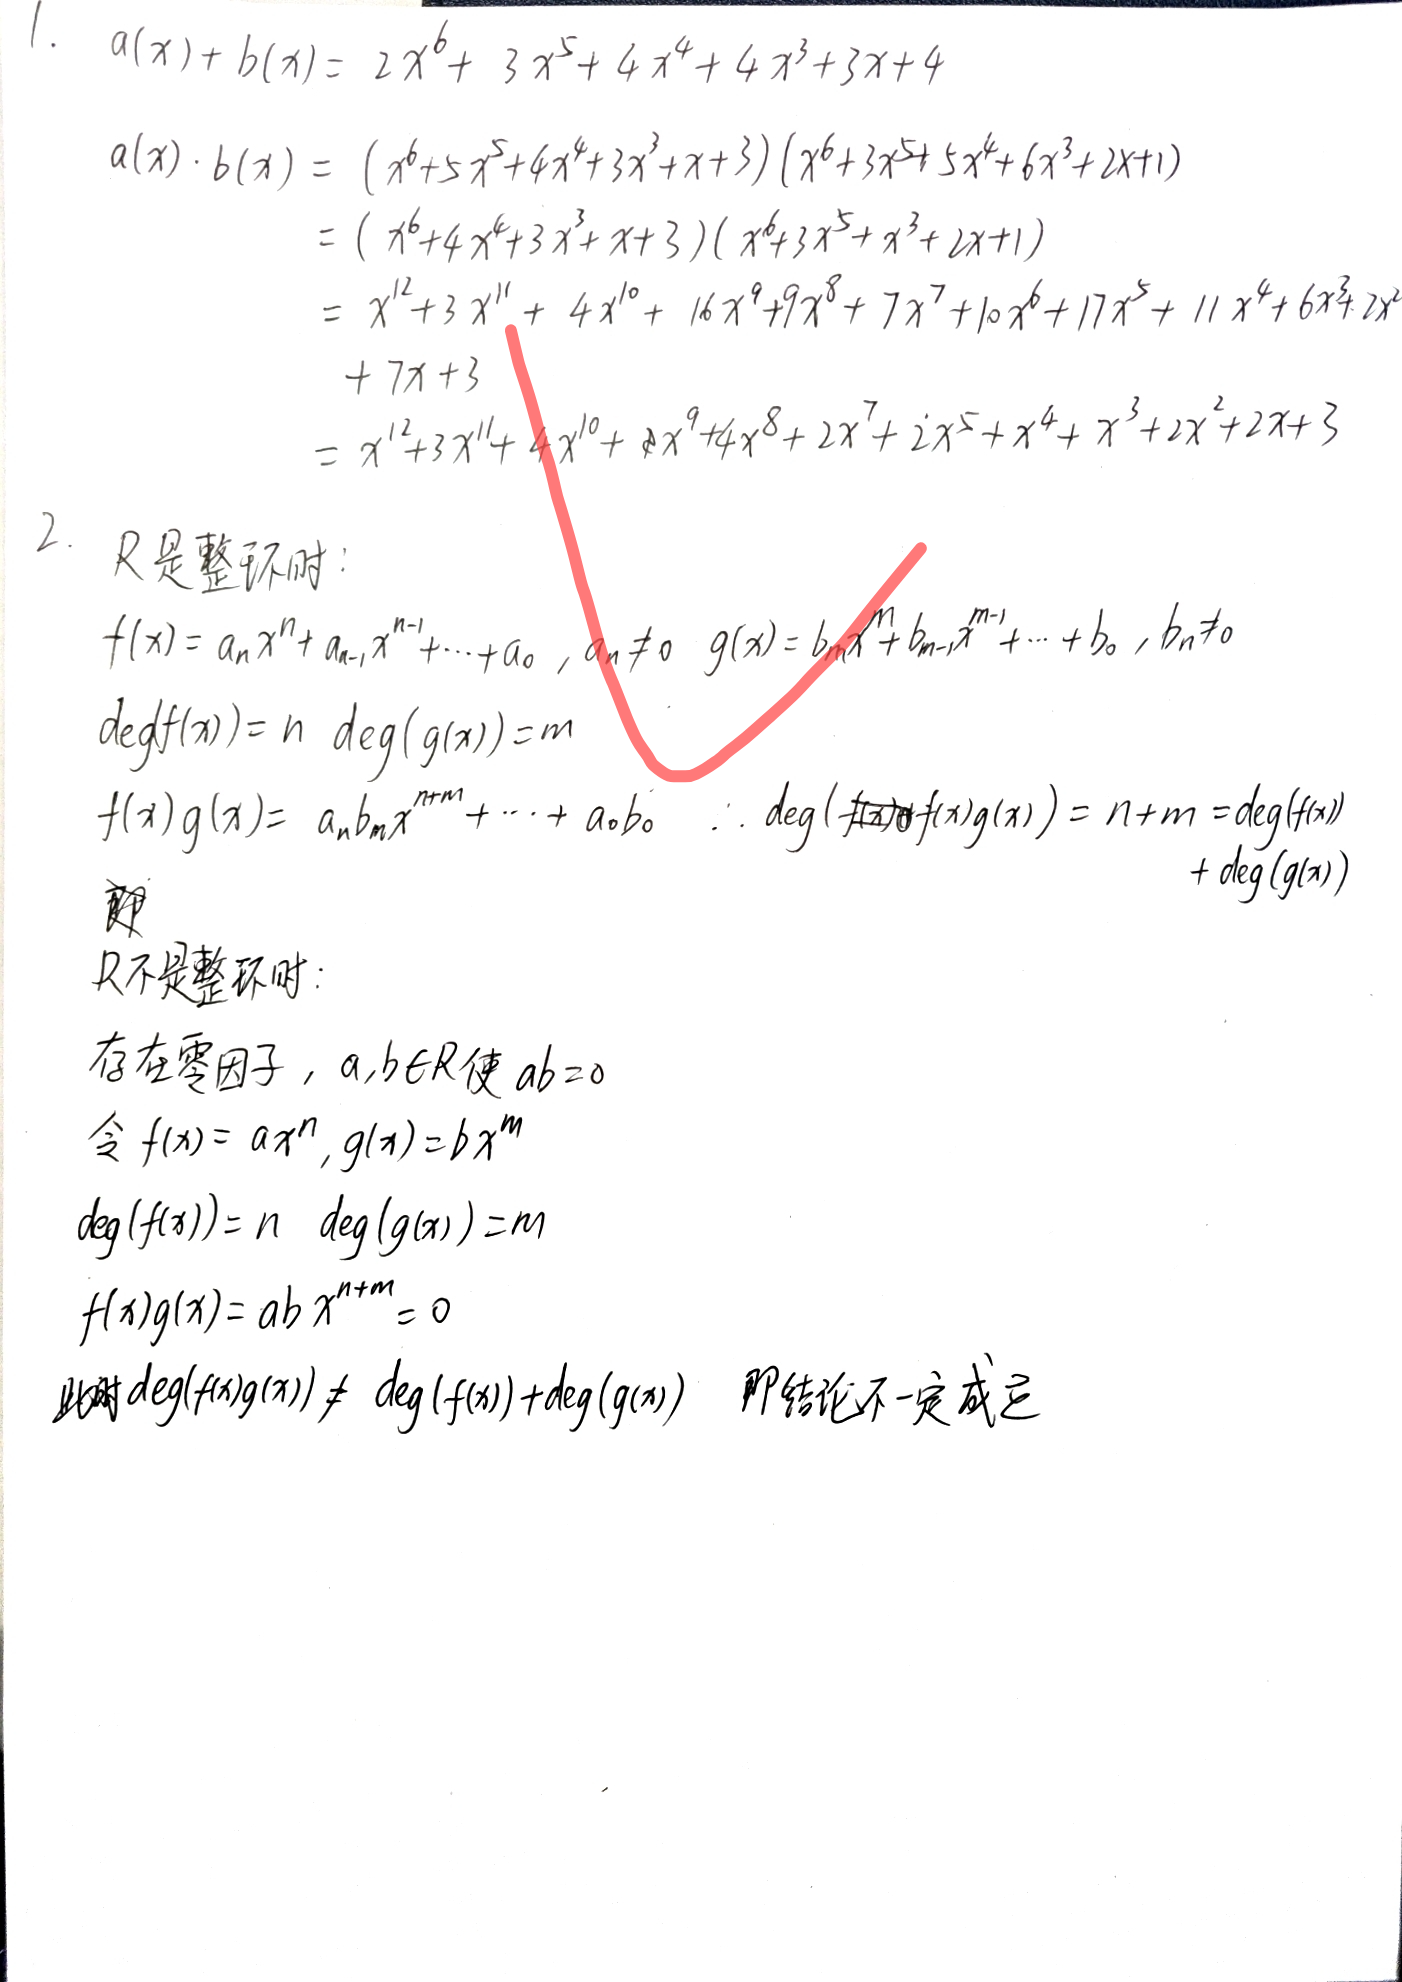 1. a(x)+b(x)= 2x⁶+ 3x⁵+4x⁴+4x³+3x+4
a(x)·b(x) = (x⁶+5x⁵+4x⁴+3x³+x+3)(x⁶+3x⁵+5x⁴+6x³+2x+1)
= (x⁶+4x⁴+3x³+x+3)(x⁶+3x⁵+x³+2x+1)
= x¹²+3x¹¹+ 4x¹⁰+ 16x⁹+9x⁸+ 7x⁷+10x⁶+17x⁵+ 11x⁴+6x³+2x²
+7x+3
= x¹²+3x¹¹+4x¹⁰+ x⁹+4x⁸+2x⁷+2x⁵+x⁴+x³+2x²+2x+3
2. R是整环时:
f(x)= aₙxⁿ+aₙ₋₁xⁿ⁻¹+···+a₀, aₙ≠0 g(x)= bₘxᵐ+bₘ₋₁xᵐ⁻¹+···+b₀, bₙ≠0
degf(x))=n deg(g(x))=m
f(x)g(x)= aₙbₘxⁿ⁺ᵐ+···+a₀b₀ ∴deg(f(x)g(x))= n+m =deg(f(x))
+deg(g(x))
R不是整环时:
存在零因子, a,b∈R使 ab=0
令 f(x)= axⁿ, g(x)=bxᵐ
deg(f(x))=n deg(g(x))=m
f(x)g(x)=abxⁿ⁺ᵐ=0
此时deg(f(x)g(x))≠ deg(f(x))+deg(g(x)) 即结论不一定成立